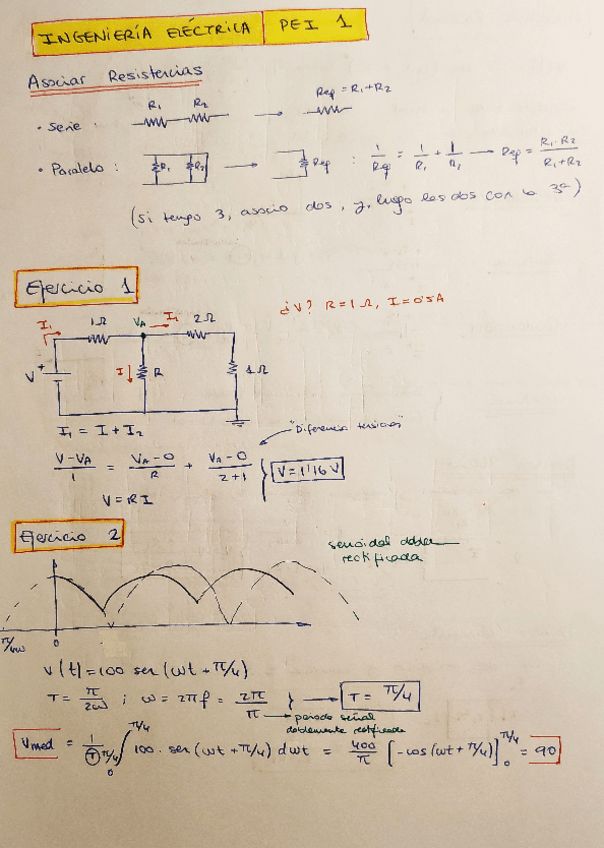 INGENIERÍA ELÉCTRICA | PEI 1
Asociar Resistencias
• Serie : R₁ R₂ → Rep = R₁ + R₂
• Paralelo : R₁ R₂ → Rep : 1/Rep = 1/R₁ + 1/R₁ → Rep = R₁·R₂/R₁+R₂
(si tengo 3, asocio dos, y luego los dos con la 3ª)
Ejercicio 1
¿V? R = 1 Ω, I = 0'5A
I₁ 1Ω VA I₂ 2Ω
V + I R 1Ω
I₁ = I + I₂
"Diferencia tensiones"
V-VA/1 = VA-0/R + VA-0/2+1 } V = 1'16 V
V = R I
Ejercicio 2
senoidal doble
rectificada
π/4ω 0
V(t) = 100 sen (ωt + π/4)
T = π/2ω ; ω = 2πf = 2π/π } → T = π/4
→ periodo señal
doblemente rectificada
Vmed = 1/T π/4 ∫₀^π/4 100 · sen (ωt + π/4) dωt = 400/π [-cos (ωt + π/4)]₀^π/4 = 90